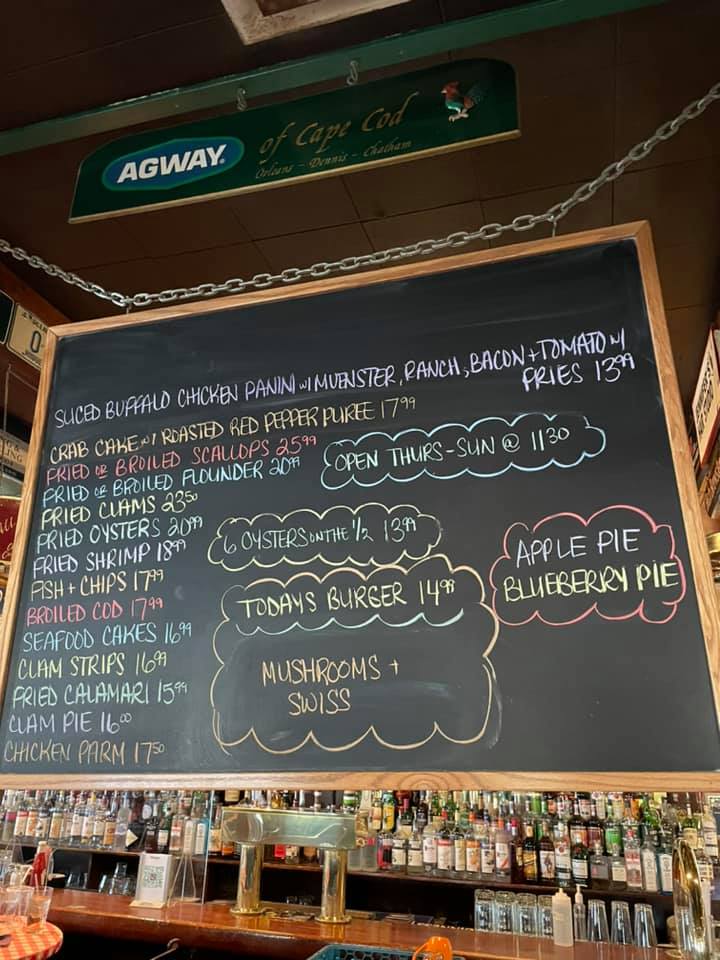 AGWAY of Cape Cod
Orleans - Dennis - Chatham
SLICED BUFFALO CHICKEN PANINI W/ MUENSTER, RANCH, BACON + TOMATO W/
FRIES 13 99
CRAB CAKE W/ ROASTED RED PEPPER PUREE 17 99
FRIED OR BROILED SCALLOPS 25 99
FRIED OR BROILED FLOUNDER 20 99
FRIED CLAMS 23 50
FRIED OYSTERS 20 99
FRIED SHRIMP 18 99
FISH + CHIPS 17 99
BROILED COD 17 99
SEAFOOD CAKES 16 99
CLAM STRIPS 16 99
FRIED CALAMARI 15 99
CLAM PIE 16 00
CHICKEN PARM 17 50
OPEN THURS-SUN @ 11 30
6 OYSTERS ON THE 1/2 13 99
TODAYS BURGER 14 99
MUSHROOMS +
SWISS
APPLE PIE
BLUEBERRY PIE